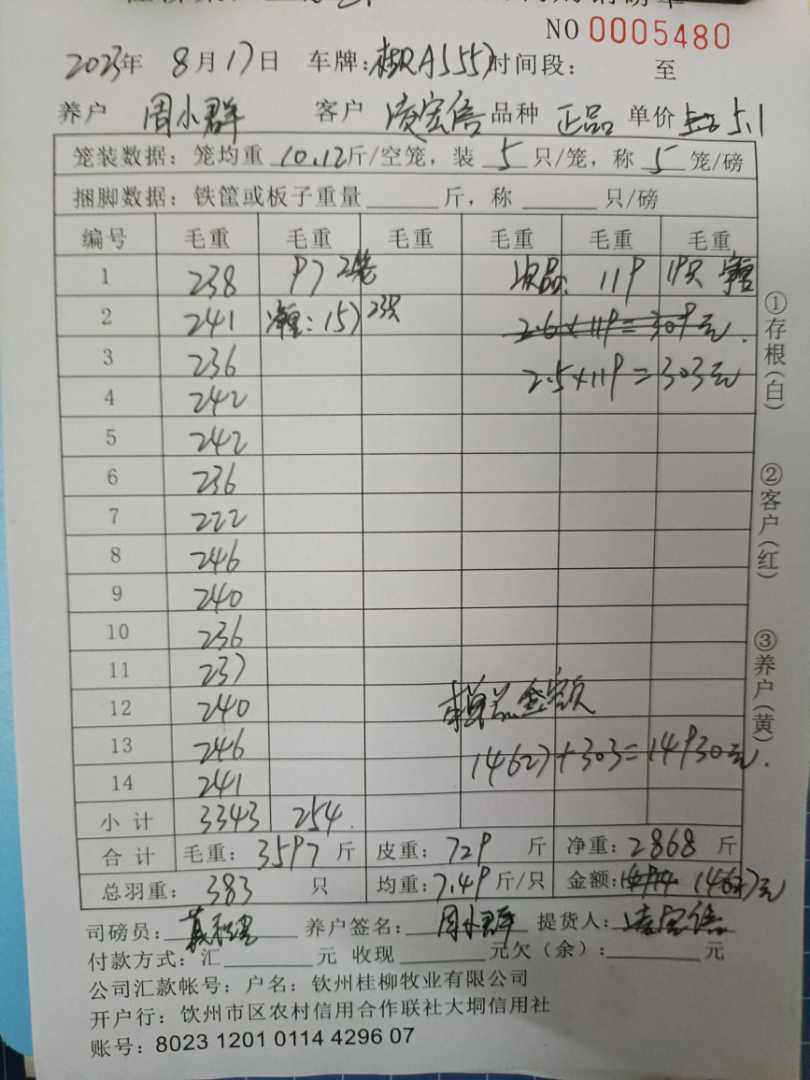 NO 0005480
2023年 8月17日 车牌:桂RA5557 时间段: 至
养户 周小群 客户 凌宏信 品种 正品 单价 5.1
笼装数据:笼均重 10.12斤/空笼,装 5 只/笼,称 5 笼/磅
捆脚数据:铁筐或板子重量______斤,称______只/磅
编号 毛重 毛重 毛重 毛重 毛重 毛重
1 238 97 2笼 次品. 119 19只
2 241 净重:157 23只 2.6×119=309元.
3 236 2.5×119=303元
4 242
5 242
6 236
7 222
8 246
9 240
10 236
11 237
12 240 总金额
13 246 14627+303=14930元.
14 241
小计 3343 254.
合计 毛重:3597斤 皮重:729斤 净重:2868斤
总羽重:383 只 均重:7.49斤/只 金额:14627元
司磅员: 养户签名:周小群 提货人:凌宏信
付款方式:汇______元 收现______元欠(余):______元
公司汇款帐号:户名:钦州桂柳牧业有限公司
开户行:钦州市区农村信用合作联社大垌信用社
账号:8023 1201 0114 4296 07
①存根(白)
②客户(红)
③养户(黄)